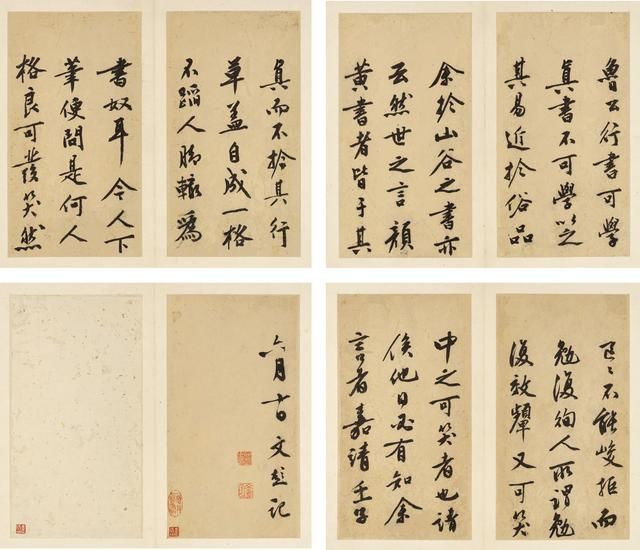 魯公行書可學
真書不可學以
其易近於俗品
余於山谷之書亦
云然世之言顏
黃書者皆于其
真而不於其行
草蓋自成一格
不蹈人腳轍為
書奴耳今人下
筆便問是何人
格良可發笑然
區〻不能峻拒而
勉復徇人所謂勉
復效顰又可笑
中之可笑者也請
俟他日必有知余
言者嘉靖壬子
六月十日文彭記